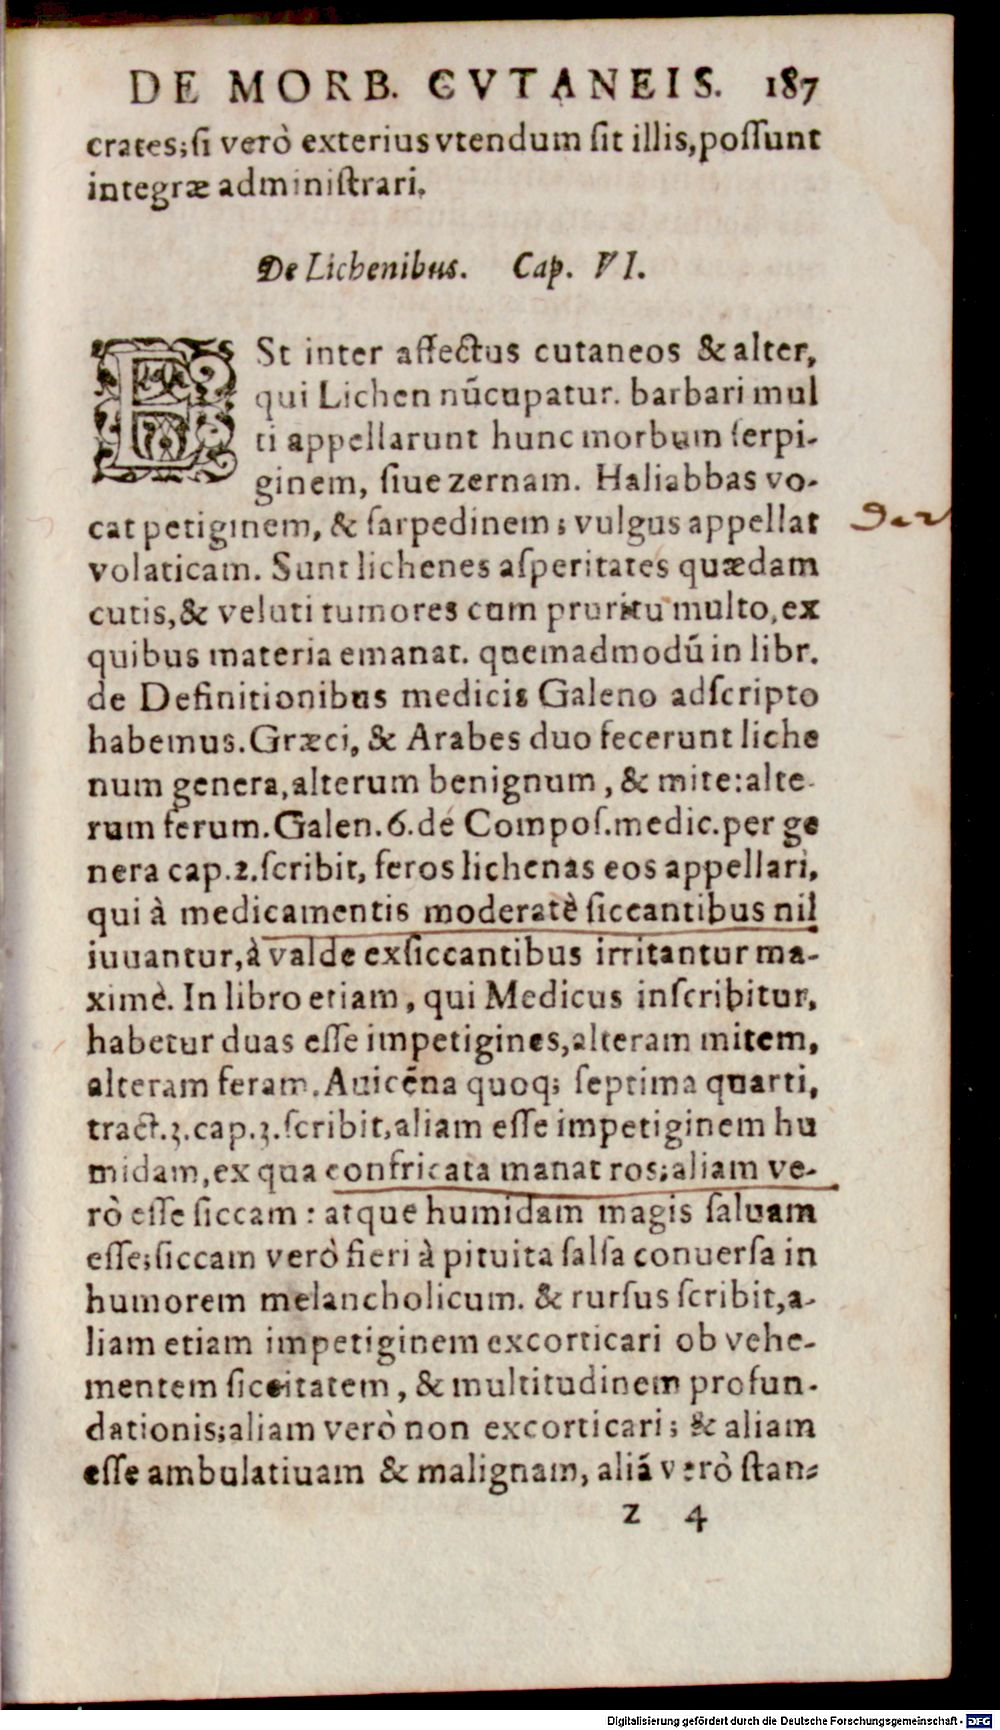 DE MORB. CVTANEIS. 187
crates;si verò exterius vtendum sit illis,possunt
integræ administrari.
De Lichenibus. Cap. VI.
ESt inter affectus cutaneos & alter,
qui Lichen nūcupatur. barbari mul
ti appellarunt hunc morbum serpi-
ginem, siue zernam. Haliabbas vo-
cat petiginem, & sarpedinem; vulgus appellat
volaticam. Sunt lichenes asperitates quædam
cutis,& veluti tumores cum pruritu multo,ex
quibus materia emanat. quemadmodū in libr.
de Definitionibus medicis Galeno adscripto
habemus.Græci, & Arabes duo fecerunt liche
num genera,alterum benignum, & mite:alte-
rum ferum.Galen.6.de Compos.medic.per ge
nera cap.2.scribit, feros lichenas eos appellari,
qui à medicamentis moderatè siccantibus nil
iuuantur,à valde exsiccantibus irritantur ma-
ximè. In libro etiam, qui Medicus inscribitur,
habetur duas esse impetigines,alteram mitem,
alteram feram.Auicēna quoq; septima quarti,
tract.3.cap.3.scribit,aliam esse impetiginem hu
midam,ex qua confricata manat ros;aliam ve-
rò esse siccam: atque humidam magis saluam
esse;siccam verò fieri à pituita salsa conuersa in
humorem melancholicum. & rursus scribit,a-
liam etiam impetiginem excorticari ob vehe-
mentem siccitatem, & multitudinem profun-
dationis;aliam verò non excorticari; & aliam
esse ambulatiuam & malignam, aliā verò stan-
Z 4
Digitalisierung gefördert durch die Deutsche Forschungsgemeinschaft - DFG